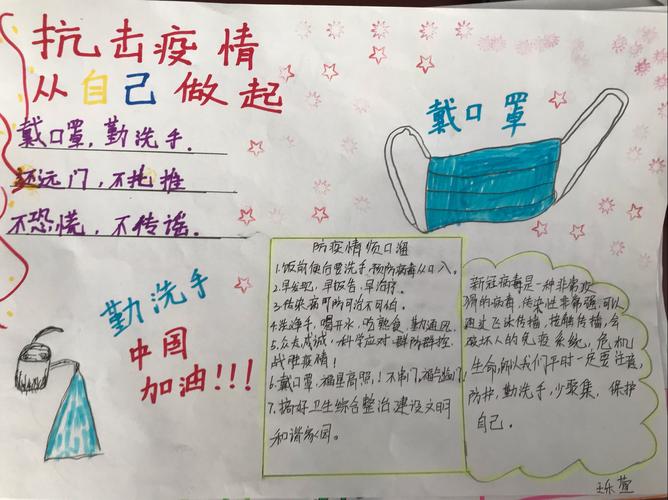 抗击疫情
从自己做起
戴口罩,勤洗手.
远门,不扎推
不恐慌,不传谣.
戴口罩
勤洗手
中国
加油!!!
防疫情顺口溜
1.饭前便后要洗手,预防病毒从口入。
2.早发现,早报告,早治疗。
3.传染病可防可治不可怕。
4.洗净手,喝开水,吃熟食,勤通风
5.众志成城,科学应对,群防群控,
战胜疫情!
6.戴口罩,福星高照!不串门,福字临门!
7.搞好卫生综合整治 建设文明
和谐家园。
新冠病毒是一种非常
的病毒,传染性非常强,可以
通过飞沫传播,接触传播,会
破坏人的免疫系统,危机
生命,所以我们平时一定要注意,
防护,勤洗手,少聚集,保护
自己.
王乐萱